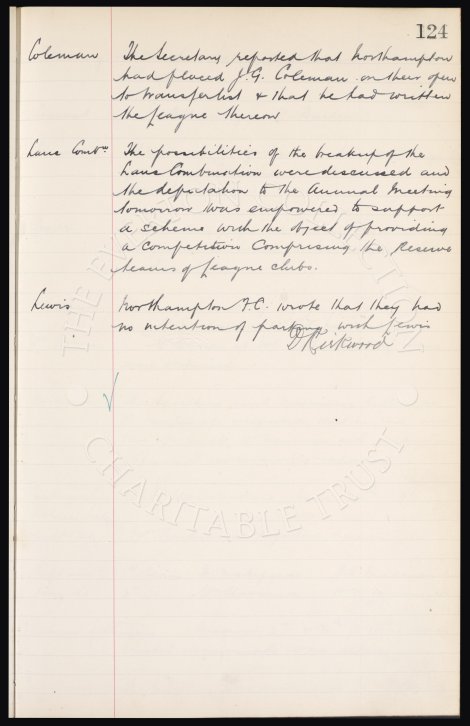 124
Coleman The Secretary reported that Northampton
had placed J. G. Coleman on their open
to transfer list & that he had written
the League thereon
Lancs Combn The possibilities of the breakup of the
Lancs Combination were discussed and
the deputation to the Annual Meeting
tomorrow was empowered to support
a scheme with the object of providing
a competition comprising the Reserve
teams of League clubs.
Lewis Northampton F.C. wrote that they had
no intention of parting with Lewis
D Kirkwood
THE EVERTON COLLECTION
CHARITABLE TRUST